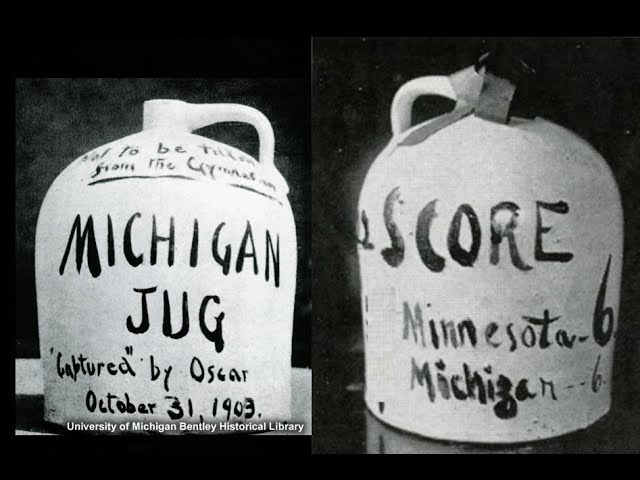 Not to be taken
from the Gymnasium
MICHIGAN
JUG
"Captured" by Oscar
October 31, 1903.
University of Michigan Bentley Historical Library
SCORE
Minnesota-6
Michigan--6